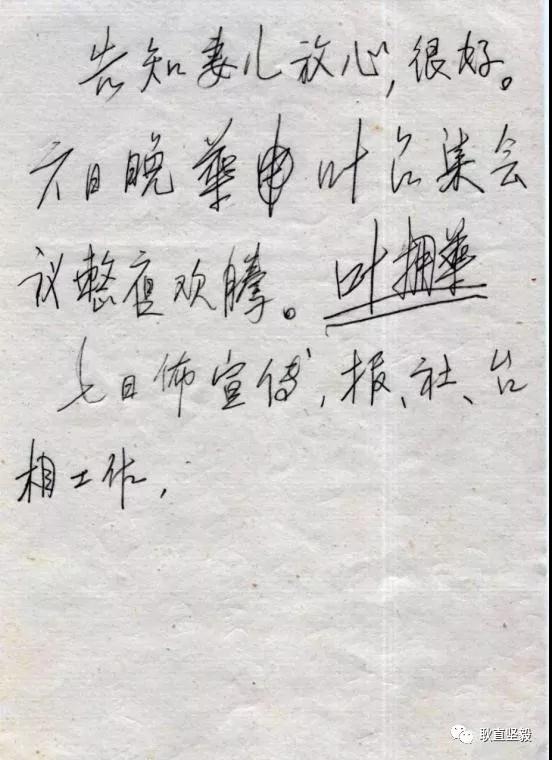 告知妻儿放心,很好。
六日晚華叶召集会
议整夜欢腾。叶拥華
七日佈宣传,报、社、台
相工作,
耿直坚毅